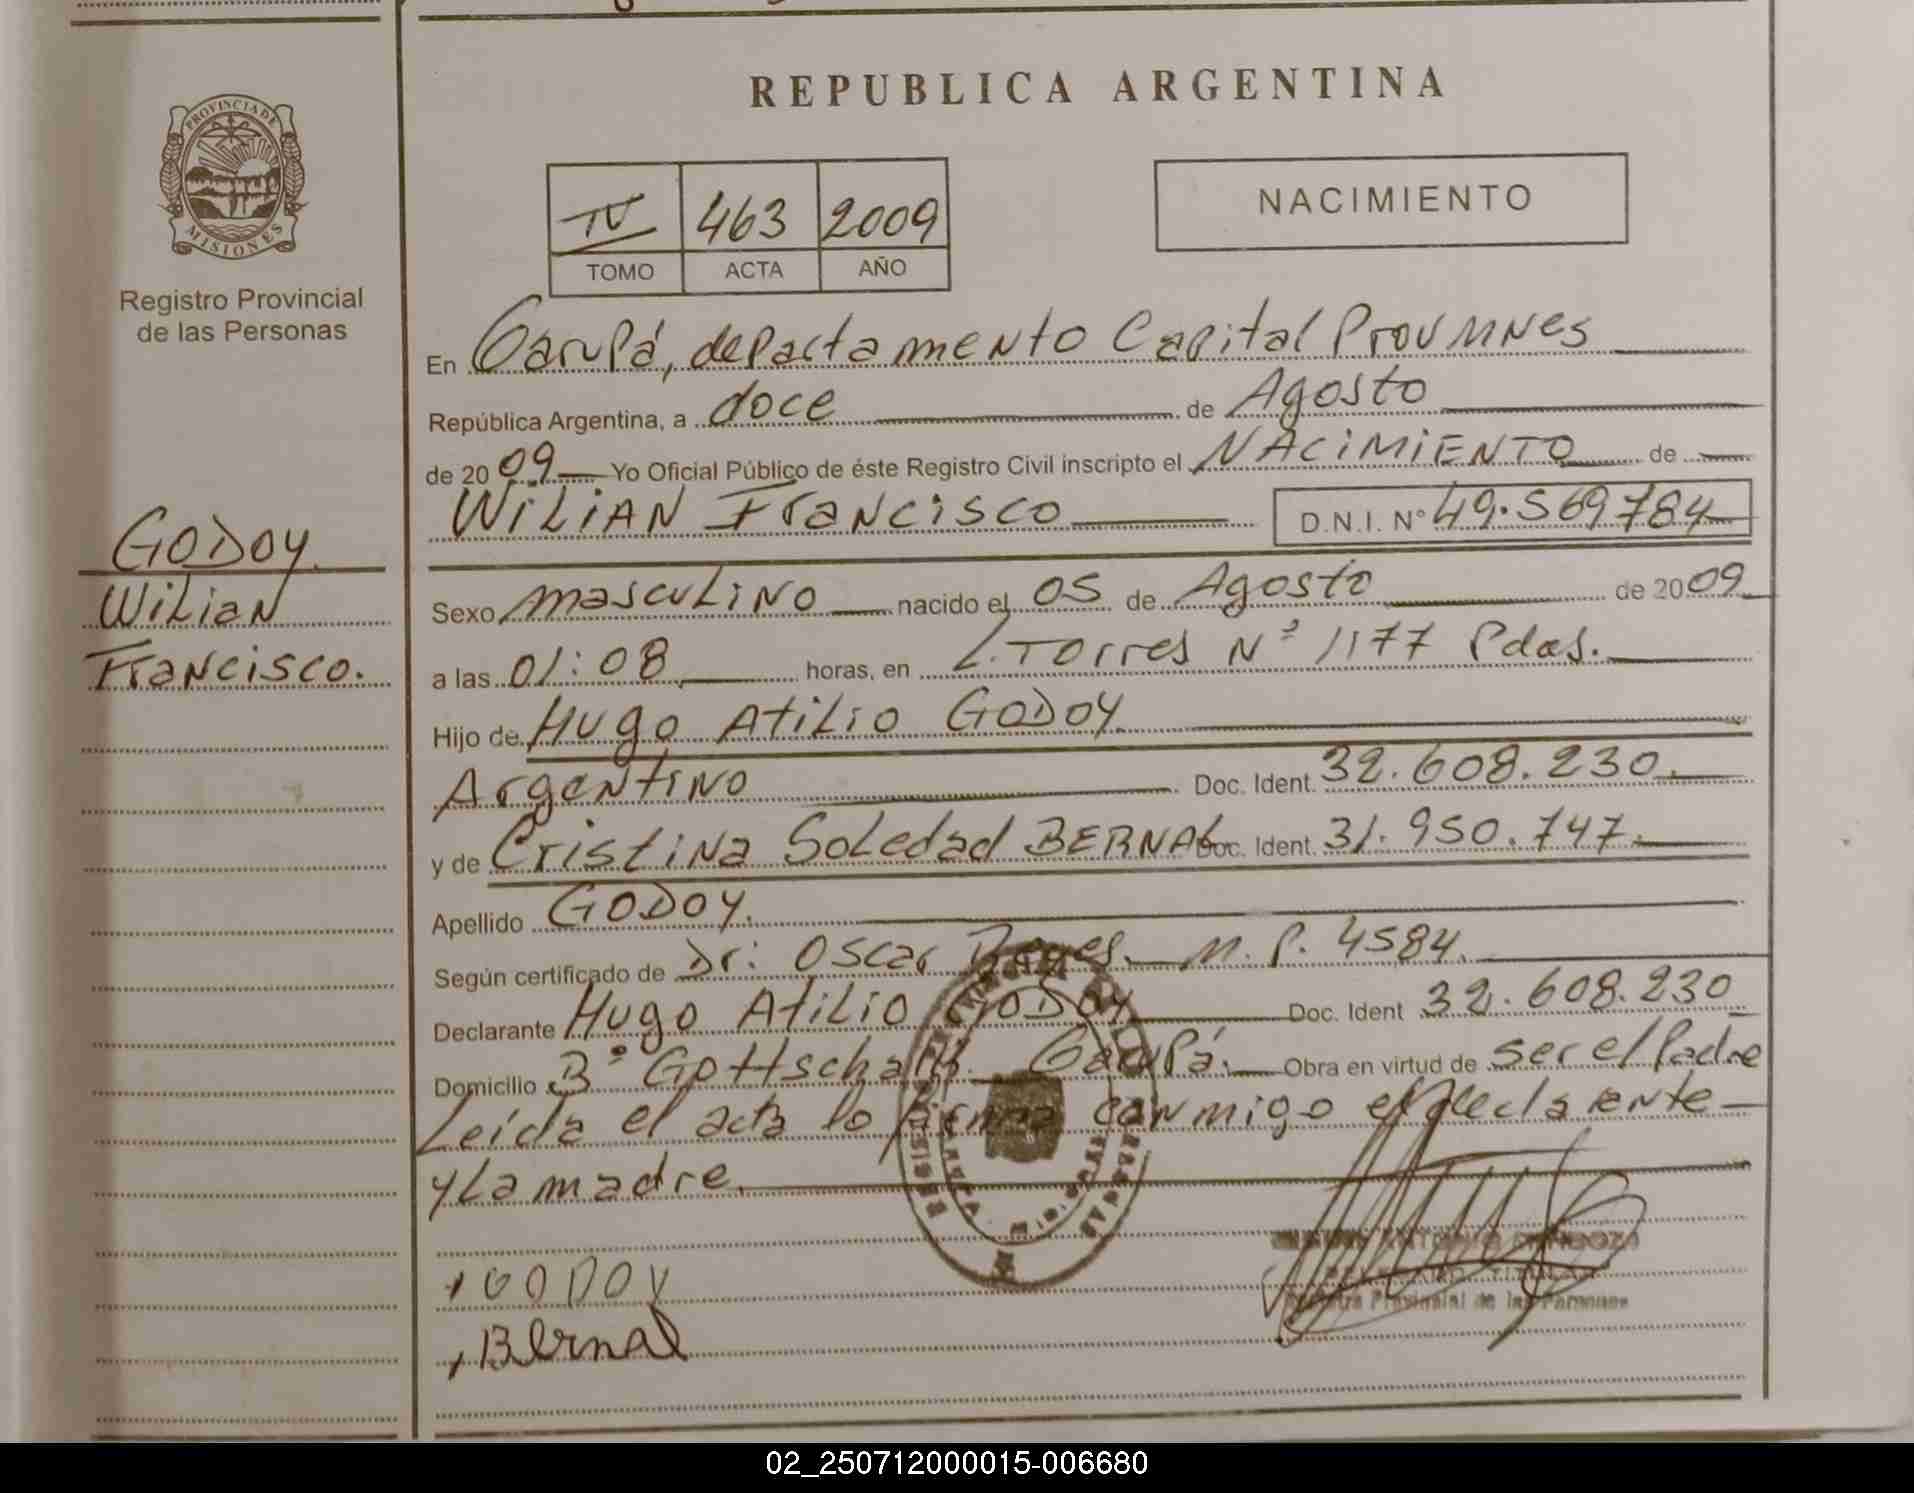 REPUBLICA ARGENTINA
PROVINCIA DE
MISIONES
Registro Provincial
de las Personas
IV 463 2009
TOMO ACTA AÑO
NACIMIENTO
En Garupá, departamento Capital Prov Mnes
República Argentina, a doce de Agosto
de 2009 Yo Oficial Público de éste Registro Civil inscripto el NACIMIENTO de
WILIAN Francisco D.N.I. N° 49.569784
GODOY
Wilian
Francisco.
Sexo masculino nacido el 05 de Agosto de 2009
a las 01:08 horas, en L. Torres N° 1177 Pdas.
Hijo de Hugo Atilio GODOY
Argentino Doc. Ident. 32.608.230
y de Cristina Soledad BERNAL Doc. Ident. 31.950.747
Apellido GODOY.
Según certificado de Dr: Oscar M.P. 4584.
Declarante Hugo Atilio GODOY Doc. Ident 32.608.230
Domicilio B° Gottschalk Garupá. Obra en virtud de ser el Padre
Leída el acta lo firma conmigo el declarante
y la madre.
GODOY
Bernal
TITULAR
Registro Provincial de las Personas
02_250712000015-006680